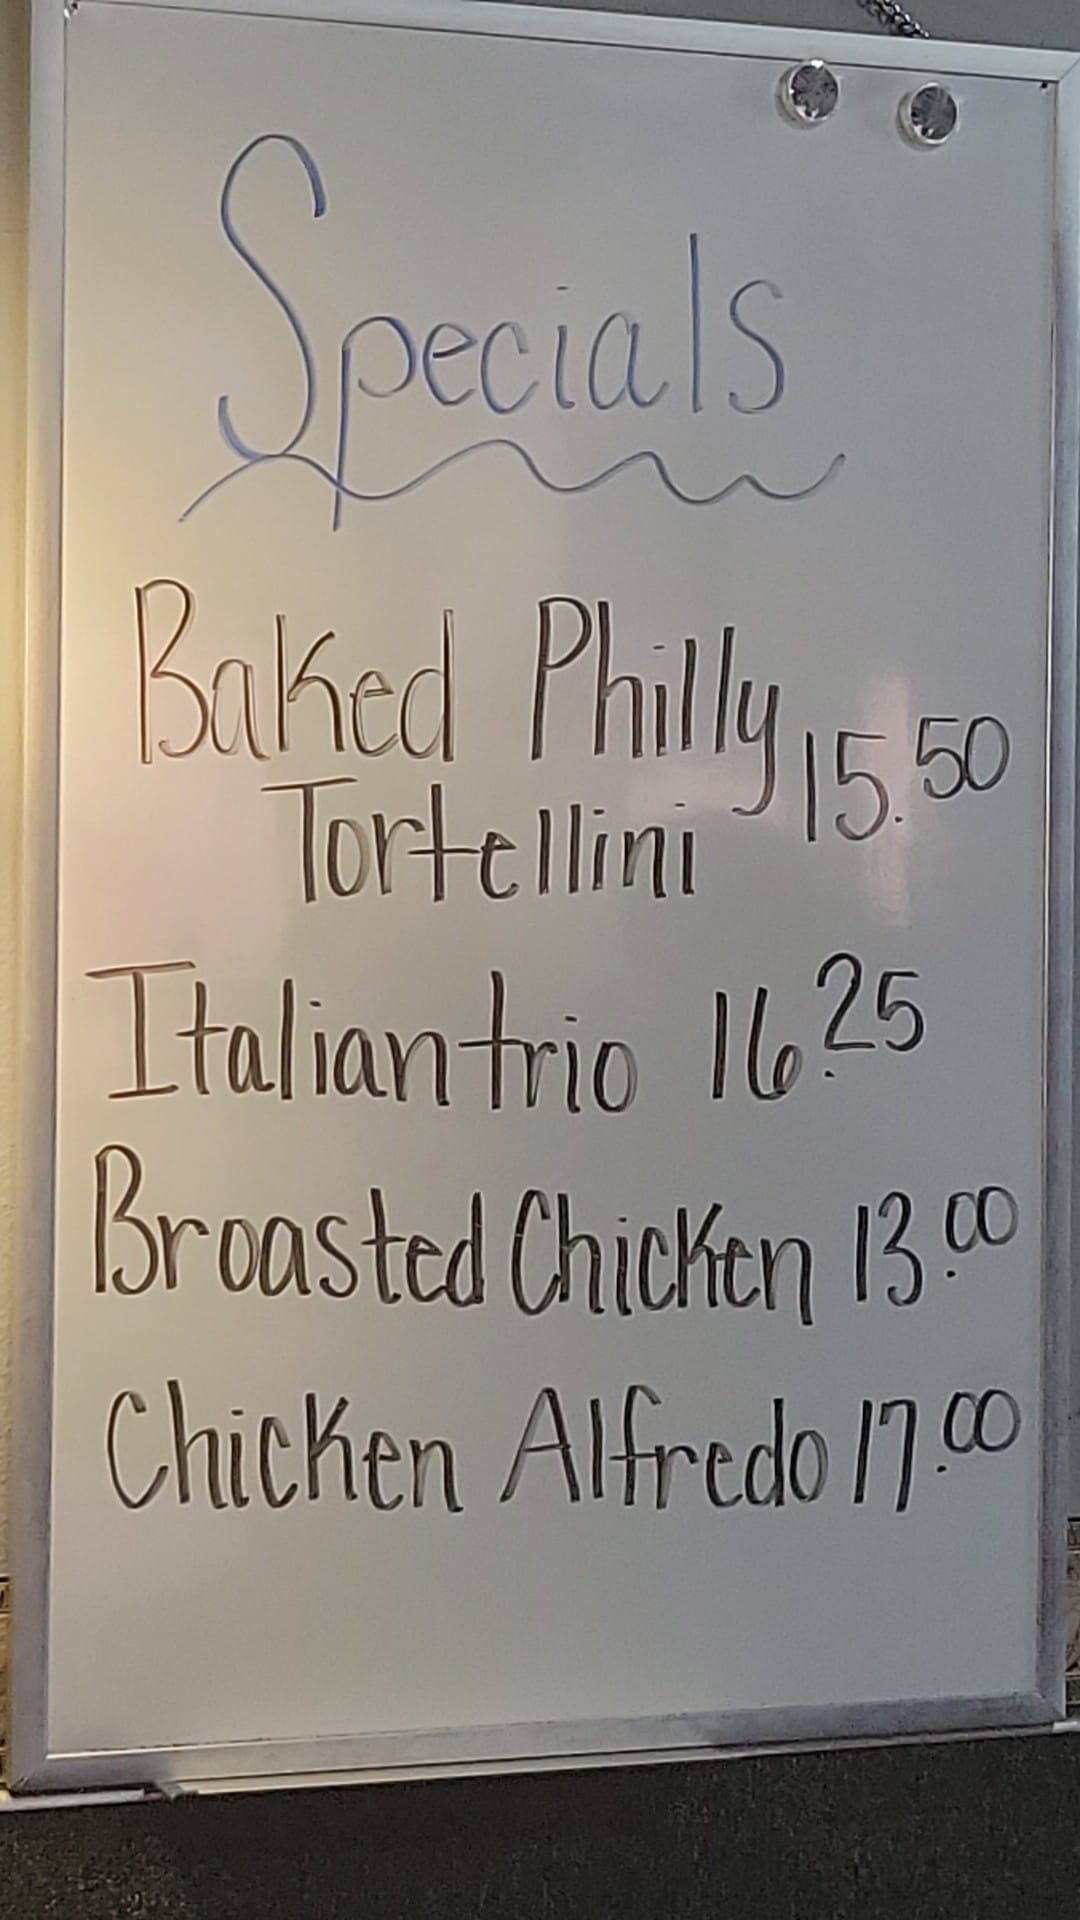 Specials
Baked Philly 15.50
Tortellini
Italian trio 16.25
Broasted Chicken 13.00
Chicken Alfredo 17.00